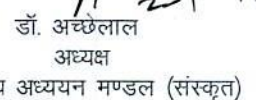 डॉ. अच्छेलाल
अध्यक्ष
अध्ययन मण्डल (संस्कृत)